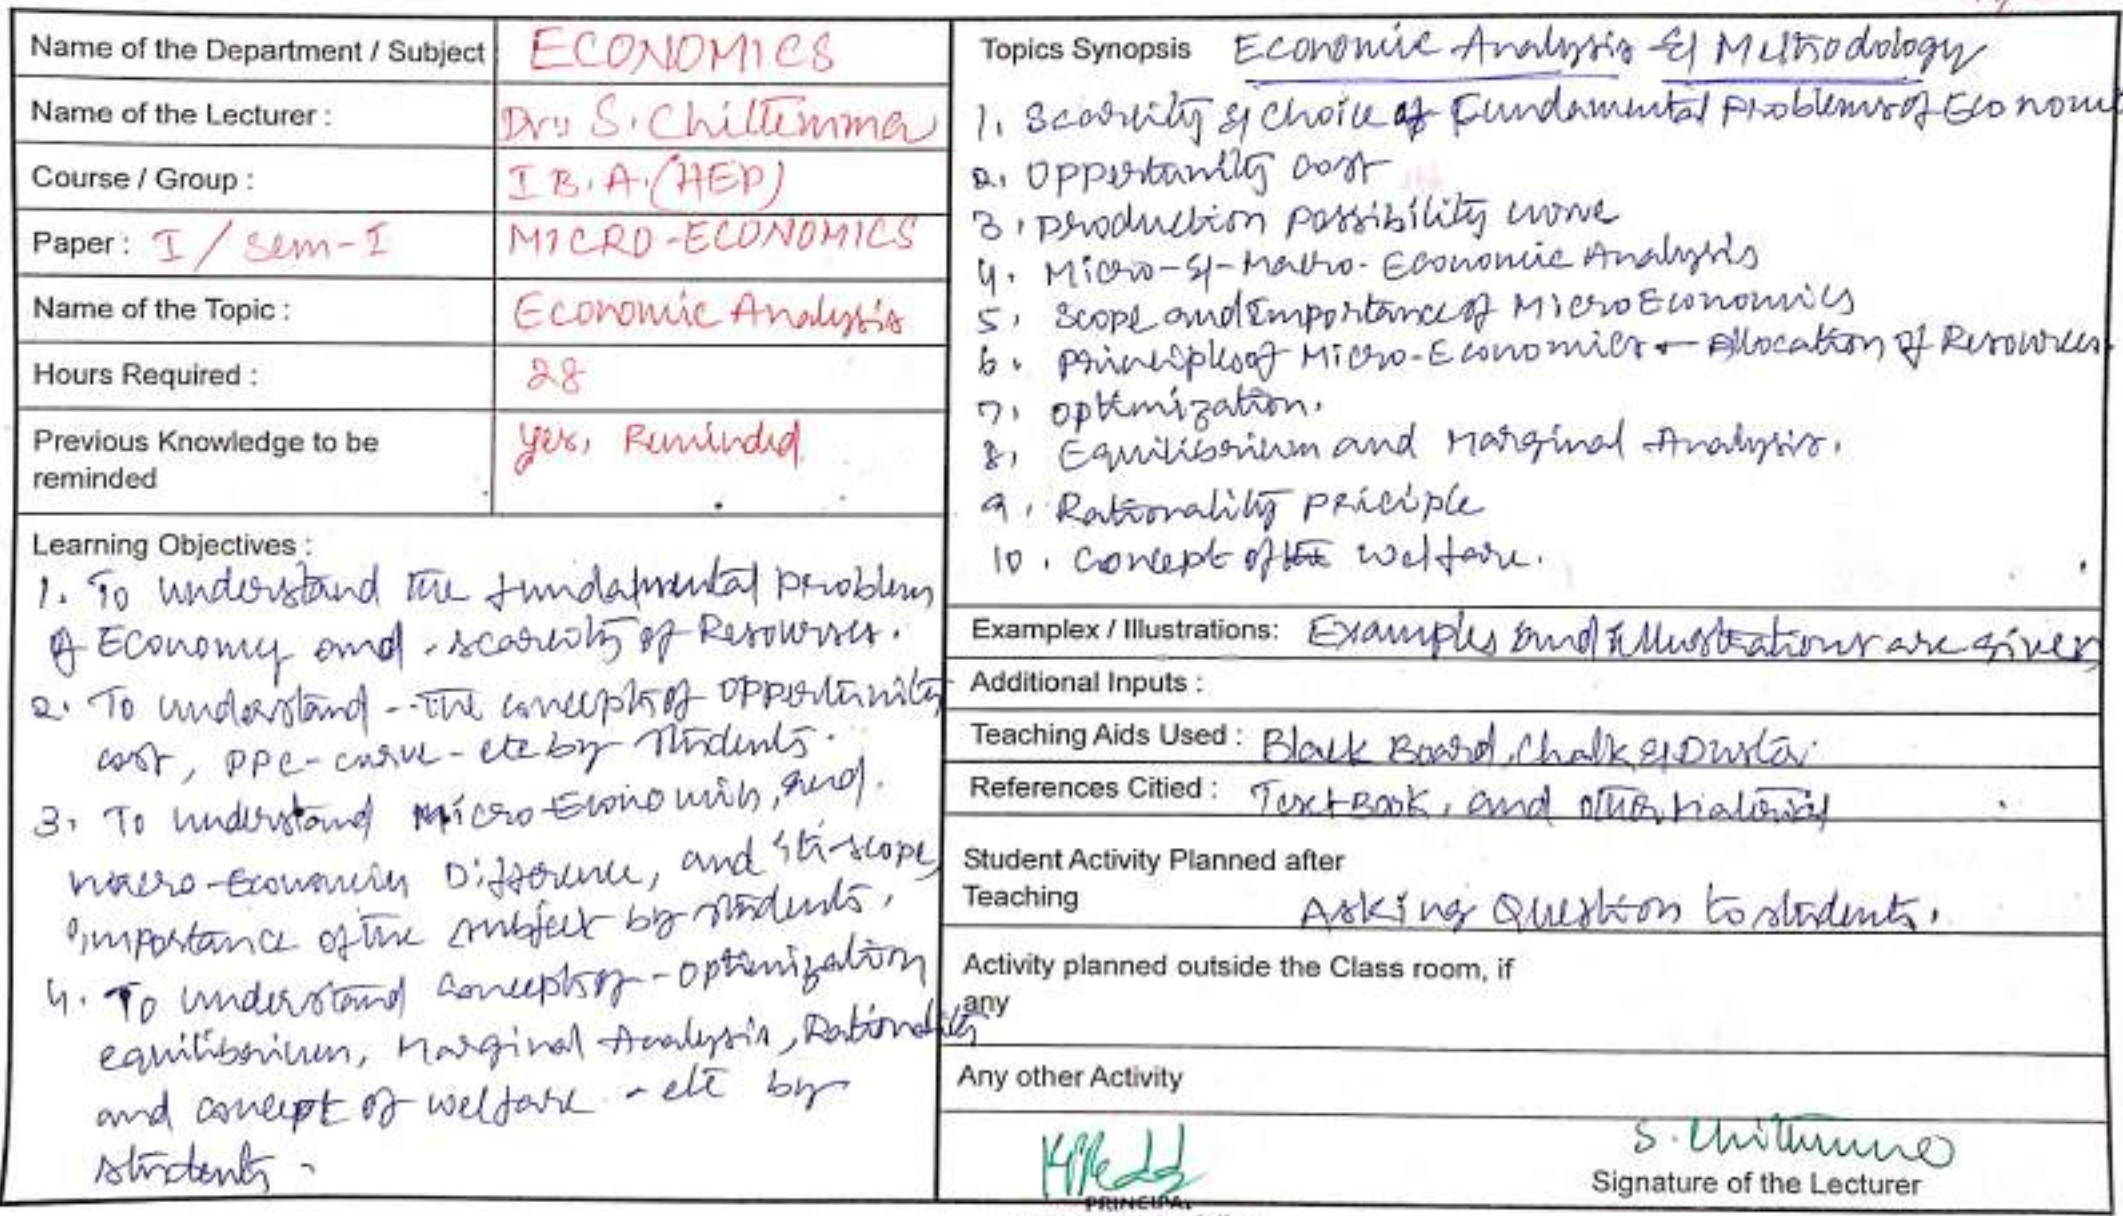 Name of the Department / Subject ECONOMICS
Name of the Lecturer : Dr. S. Chittemma
Course / Group : I B.A. (HEP)
Paper : I / Sem-I MICRO-ECONOMICS
Name of the Topic : Economic Analysis
Hours Required : 28
Previous Knowledge to be
reminded
yes, Reminded
Learning Objectives :
1. To understand the fundamental problem
of Economy and scarcity of Resourses.
2. To understand -- the concepts of opportunity
cost, PPC-curve - etc by students.
3. To understand Micro Economics, and
macro-Economics Difference, and its-scope,
importance of the subject by students.
4. To understand concepts of - optimization
equilibrium, Marginal Analysis, Rationality
and concept of welfare - etc by
students -
Topics Synopsis Economic Analysis & Methodology
1. Scarcity & choice of Fundamental Problems of Economi
2. Oppertunity cost
3. production possibility curve
4. Micro-&-Macro-Economic Analysis
5. Scope and Importance of Micro Economics
6. Principles of Micro-Economics - Allocation of Resources.
7. optimization.
8. Equilibrium and Marginal Analysis.
9. Rationality priciple
10. Concept of welfare.
Examplex / Illustrations: Examples and Illustrations are given
Additional Inputs :
Teaching Aids Used : Black Board, Chalk & Duster
References Citied : Text Book, and other Materials
Student Activity Planned after
Teaching
Asking Question to students.
Activity planned outside the Class room, if
any
Any other Activity
S. Chittemma
PRINCIPAL
Signature of the Lecturer